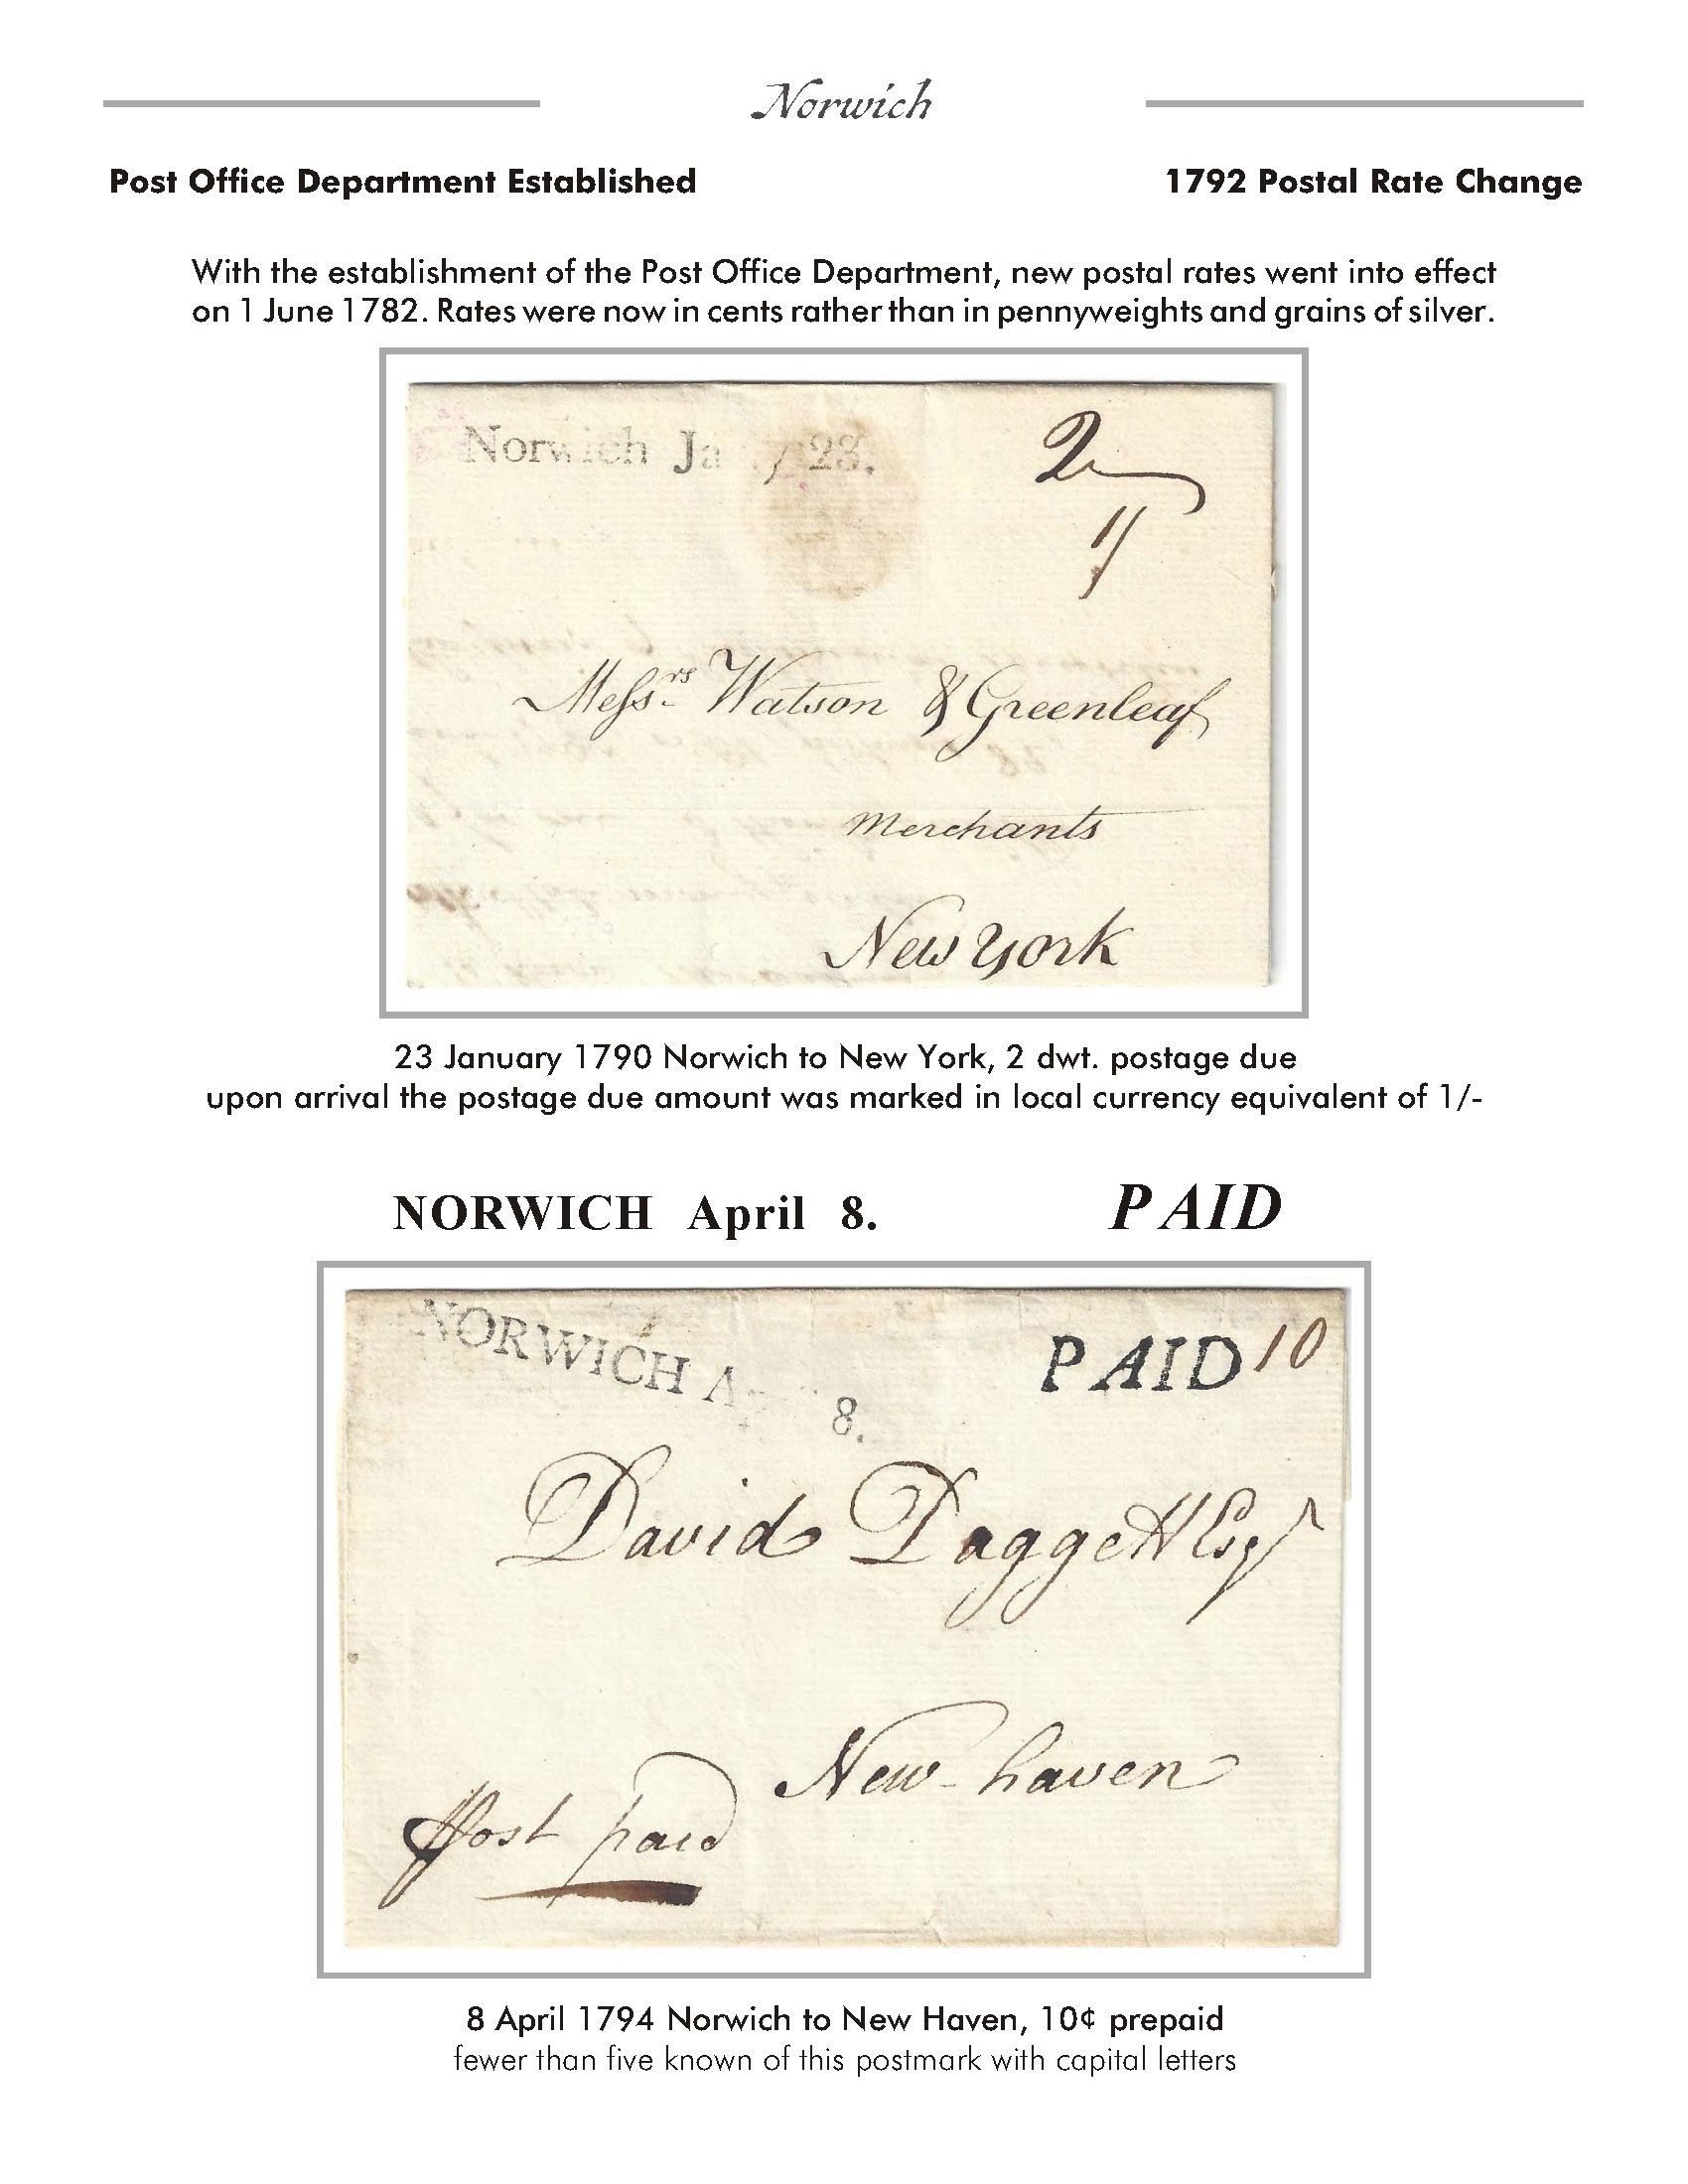 Norwich
Post Office Department Established
1792 Postal Rate Change
With the establishment of the Post Office Department, new postal rates went into effect
on 1 June 1782. Rates were now in cents rather than in pennyweights and grains of silver.
Norwich Ja y 23.
2
1/
Messrs Watson & Greenleaf
Merchants
New York
23 January 1790 Norwich to New York, 2 dwt. postage due
upon arrival the postage due amount was marked in local currency equivalent of 1/-
NORWICH April 8. PAID
NORWICH Ap 8.
PAID 10
David Daggett Esqr
New-haven
Post paid
8 April 1794 Norwich to New Haven, 10¢ prepaid
fewer than five known of this postmark with capital letters